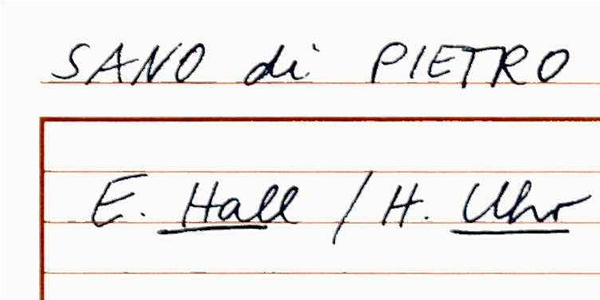 SANO di PIETRO
E. Hall / H. Uhr